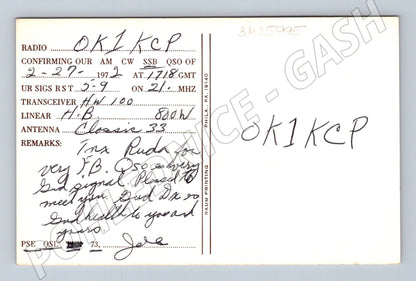 RADIO OK1KCP
CONFIRMING OUR AM CW SSB QSO OF
2-27- 1972 AT 1718 GMT
UR SIGS RST 5-9 ON 21. MHZ
TRANSCEIVER HW 100
LINEAR H.B. 800W
ANTENNA Classic 33
REMARKS: Tnx Ruda for
very F.B. Qso es very
Gud signal Pleased to
meet you. Gud Dx es
Gud health to you and
yours.
PSE QSL 73, Joe
PHILA., PA. 19140
RAUM PRINTING
BM25995
OK1KCP
POHLEDNICE - GASH